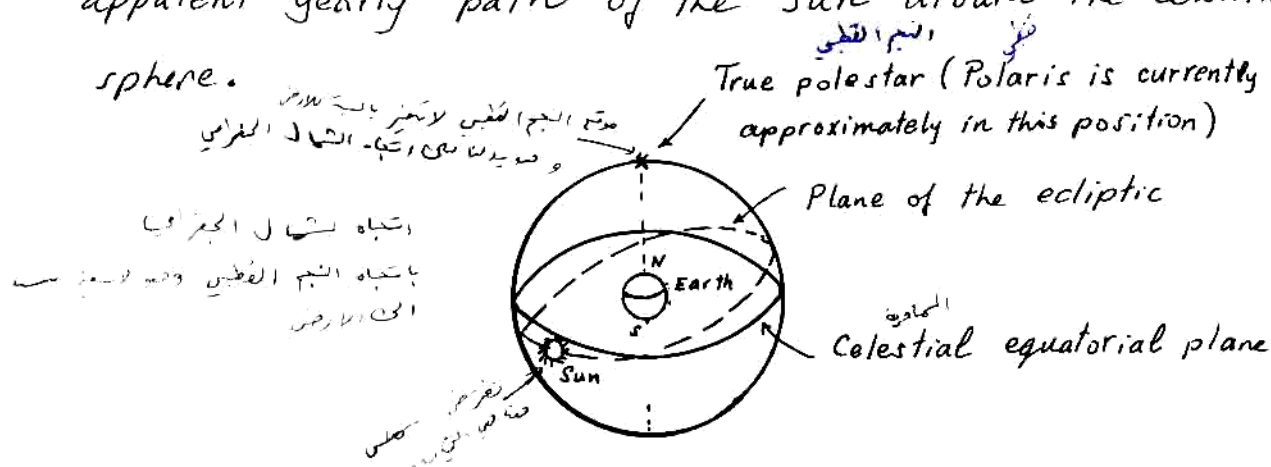 apparent yearly path of the sun around the
sphere.
النجم القطبي
True polestar (Polaris is currently
approximately in this position)
موقع النجم القطبي لا يتغير بالنسبة للأرض
اتجاه الشمال الجغرافي
Plane of the ecliptic
اتجاه الشمال الجغرافي
باتجاه النجم القطبي
الى الارض
N
Earth
S
السماوية
Celestial equatorial plane
Sun